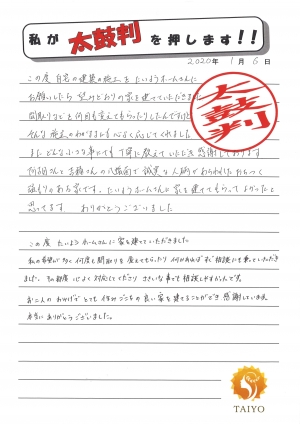 私が太鼓判を押します!!
2020年 1月 6日
この度 自宅の建築の施工を たいようホームさんに
お願いしたら 望みどおりの家を建てていただきました
間取りなど 何回も変えてもらったりしたんですけど
そんな 施主のわがままも 心よく応じてくれました
また どんな小さな事にでも 丁寧に教えていただき 感謝しております
さんと さんの 誠実な人柄が あらわれた
温もりのある家です。たいようホームさんに 家を建てもらって よかったと
思ってます。 ありがとうございました
太鼓判
この度 たいようホームさんに家を建てていただきました
私の希望が多くて 何度も間取りを変えてもらったり 何かあればすぐ相談にも乗っていただき
ました。その都度 心よく対応してくださり ささいな事でも相談しやすかったです。
お二人の おかげで とても住みごこちの良い家を建てることができ 感謝しています。
本当にありがとうございました。
TAIYO